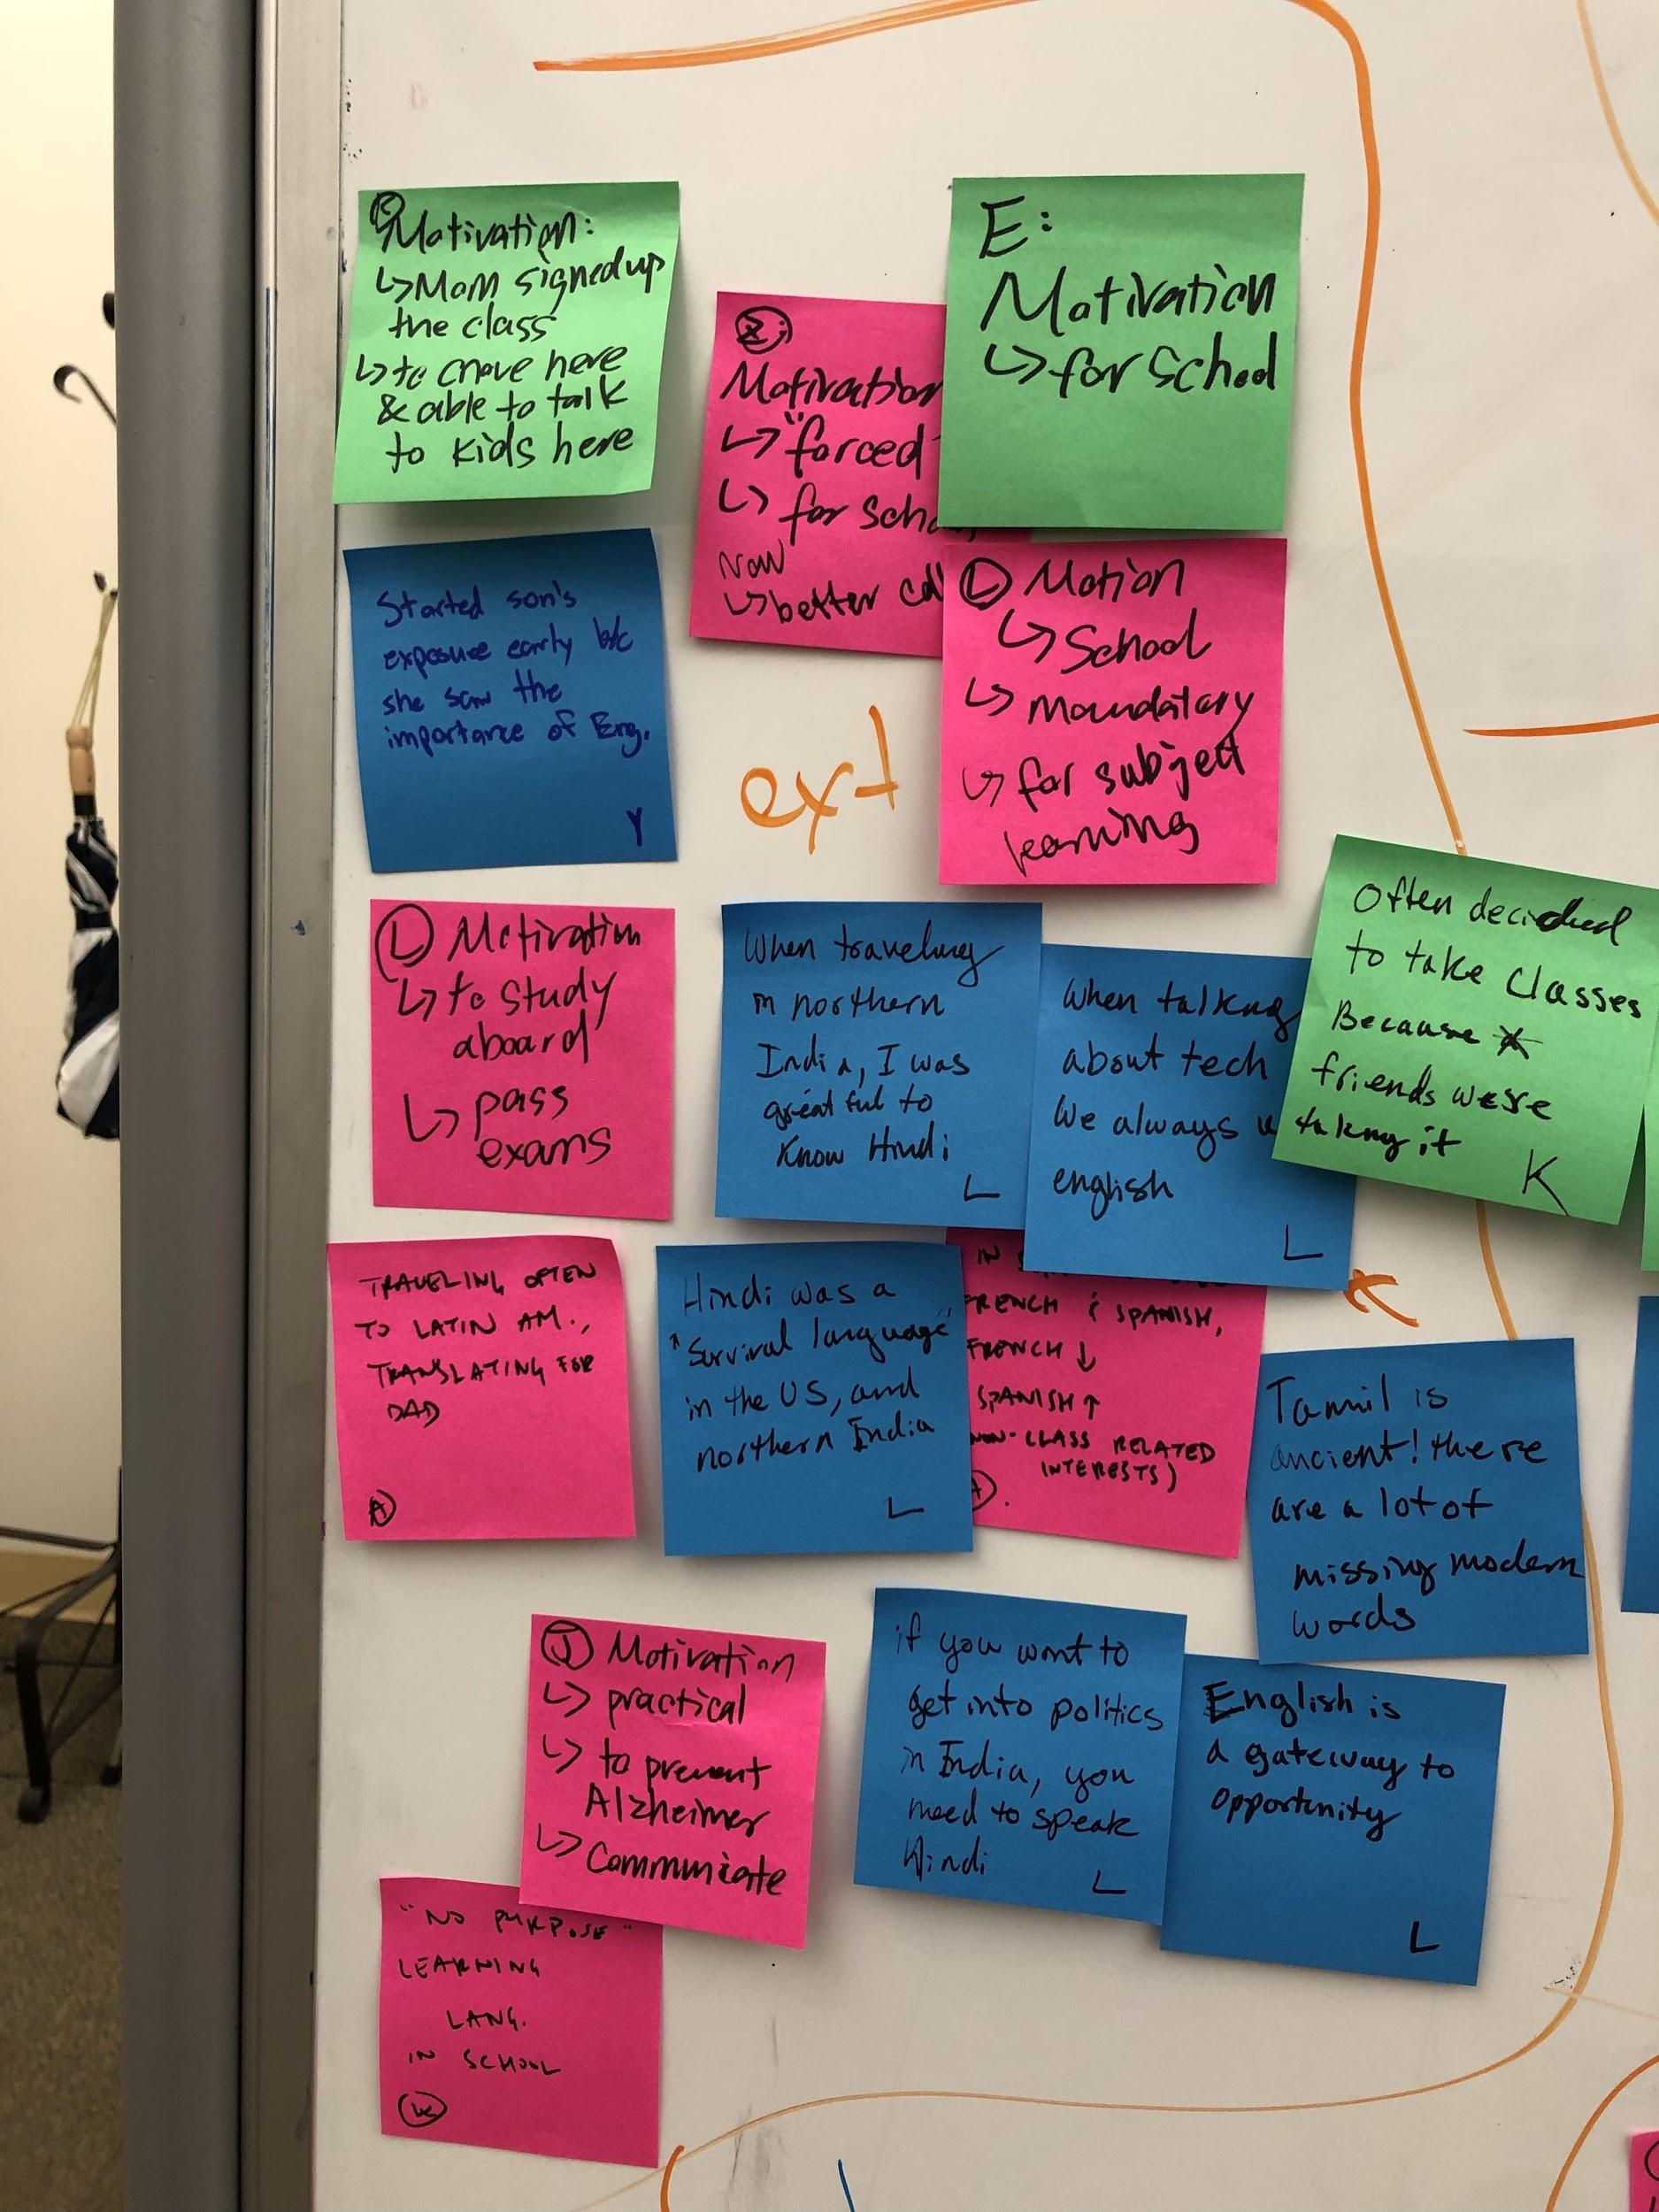 Motivation:
↳ Mom signed up
the class
↳ to move here
& able to talk
to kids here
E:
Motivation
↳ for School
Motivation
↳ "forced
↳ for
Now
↳ better
Started son's
exposure early b/c
she saw the
importance of Eng.
Y
ext
Ⓛ Motion
↳ School
↳ mandatory
↳ for subject
learning
Ⓛ Motivation
↳ to study
aboard
↳ pass
exams
When traveling
in northern
India, I was
greatful to
know Hindi
L
When talking
about tech
We always
english
L
Often decided
to take classes
Because
friends were
taking it
K
TRAVELING OFTEN
TO LATIN AM.,
TRANSLATING FOR
DAD
Ⓐ
Hindi was a
"Survival language"
in the US, and
northern India
L
IN
FRENCH & SPANISH,
FRENCH ↓
SPANISH ↑
NON-CLASS RELATED
INTERESTS)
Tamil is
ancient! there
are a lot of
missing modern
words
Ⓙ Motivation
↳ practical
↳ to prevent
Alzheimer
↳ Communicate
if you want to
get into politics
in India, you
need to speak
Hindi
L
English is
a gateway to
opportunity
L
"NO PURPOSE"
LEARNING
LANG.
IN SCHOOL